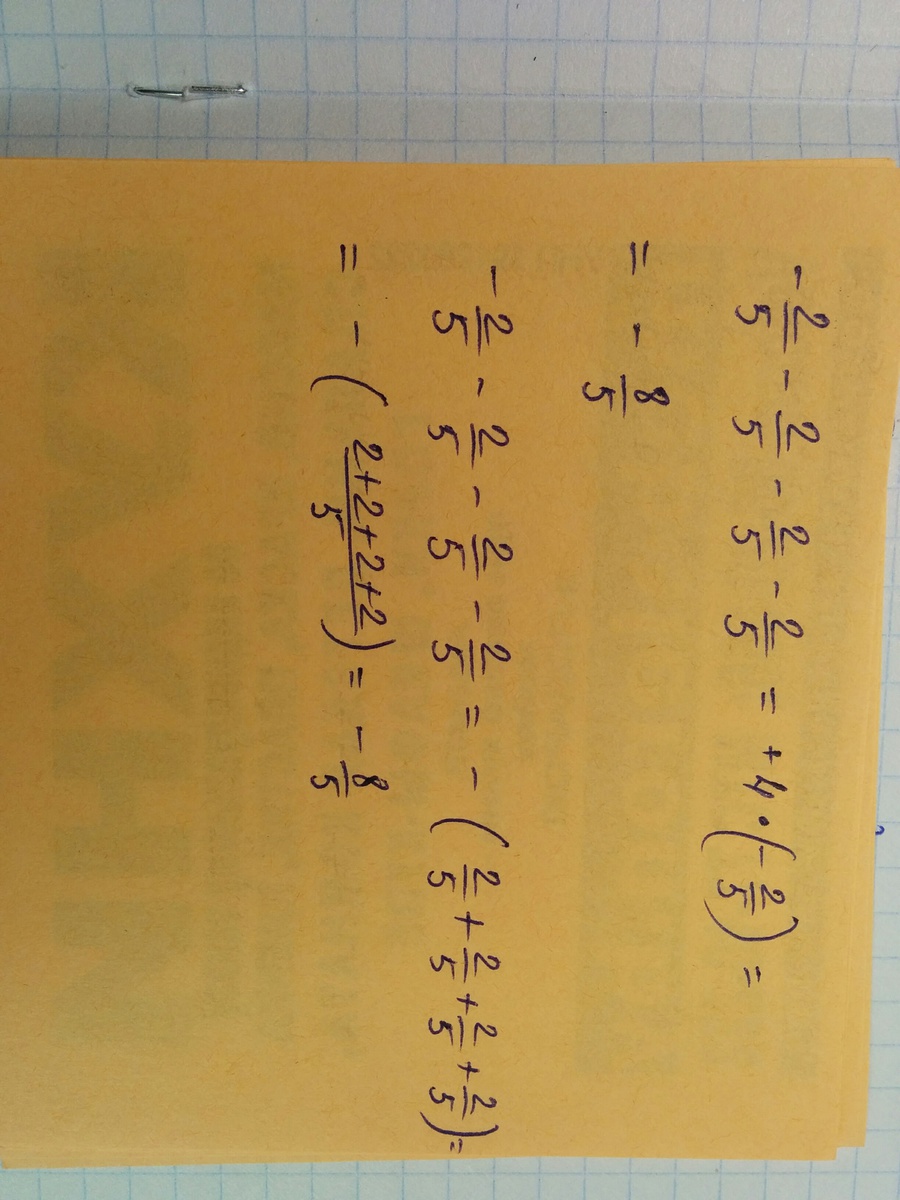 -2/5 - 2/5 - 2/5 - 2/5 = +4·(-2/5) =
= -8/5
-2/5 - 2/5 - 2/5 - 2/5 = -(2/5 + 2/5 + 2/5 + 2/5) =
= -((2+2+2+2)/5) = -8/5